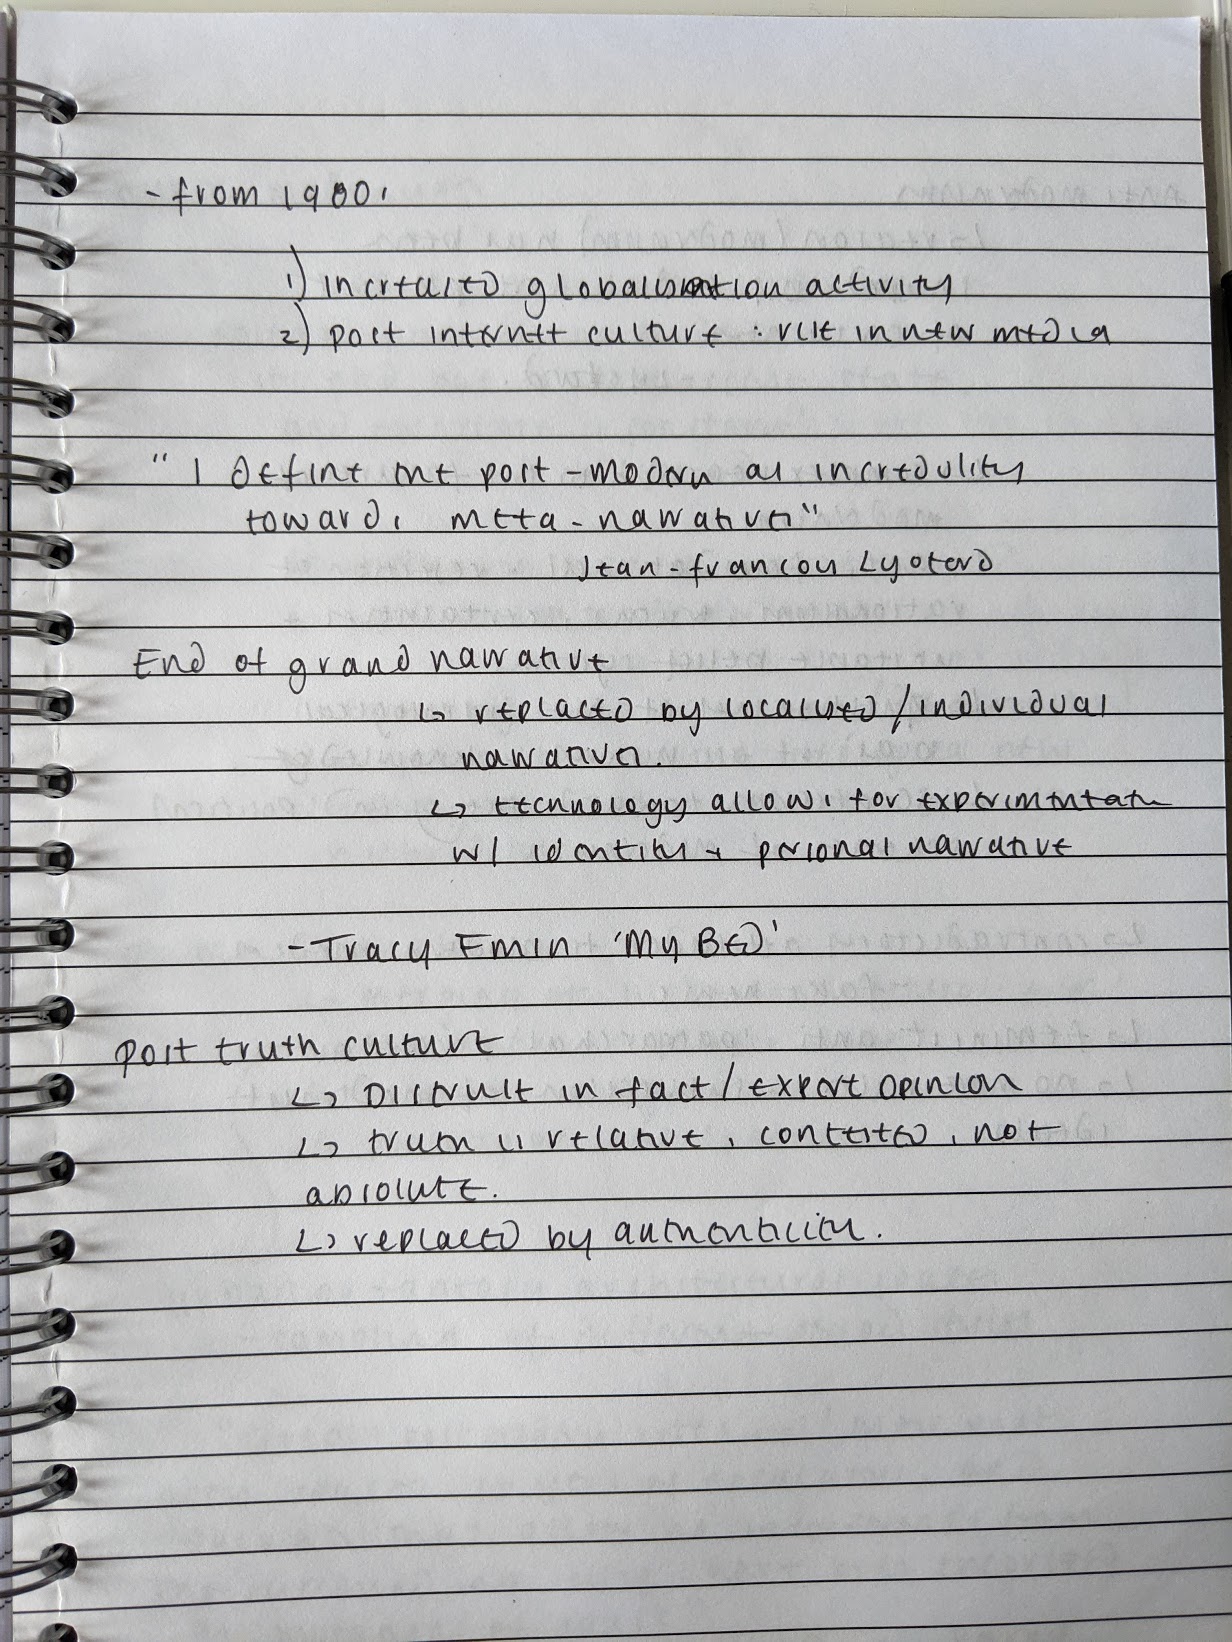 - from 1980s
1) increased globalisation activity
2) post internet culture : rise in new media
" I define the post-modern as incredulity
towards meta-narratives"
Jean-francois Lyotard
End of grand narrative
↳ replaced by localised / individual
narratives.
↳ technology allows for experimentation
w/ identity + personal narrative
- Tracy Emin 'My Bed'
post truth culture
↳ Distrust in fact / expert opinion
↳ truth is relative, contested, not
absolute.
↳ replaced by authenticity.